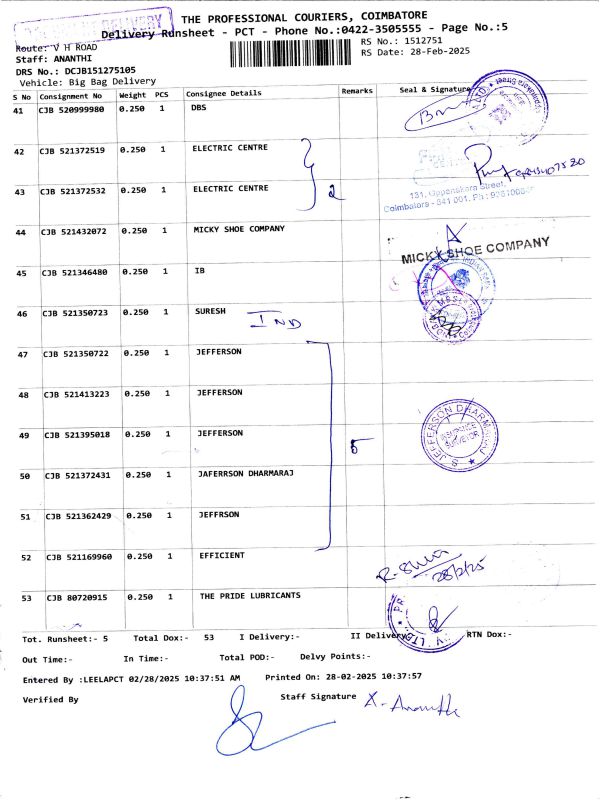 THE PROFESSIONAL COURIERS, COIMBATORE
Delivery Runsheet - PCT - Phone No.:0422-3505555 - Page No.:5
Route: V H ROAD
RS No.: 1512751
Staff: ANANTHI
RS Date: 28-Feb-2025
DRS No.: DCJB151275105
Vehicle: Big Bag Delivery
S No Consignment No Weight PCS Consignee Details Remarks Seal & Signature
41 CJB 520999980 0.250 1 DBS
42 CJB 521372519 0.250 1 ELECTRIC CENTRE
43 CJB 521372532 0.250 1 ELECTRIC CENTRE
2
131, Oppanakara Street,
Coimbatore - 641 001.
44 CJB 521432072 0.250 1 MICKY SHOE COMPANY
MICKY SHOE COMPANY
45 CJB 521346480 0.250 1 IB
46 CJB 521350723 0.250 1 SURESH IND
47 CJB 521350722 0.250 1 JEFFERSON
48 CJB 521413223 0.250 1 JEFFERSON
49 CJB 521395018 0.250 1 JEFFERSON
5
S. JEFFERSON DHARMARAJ
INSURANCE
SURVEYOR
50 CJB 521372431 0.250 1 JAFERRSON DHARMARAJ
51 CJB 521362429 0.250 1 JEFFRSON
52 CJB 521169960 0.250 1 EFFICIENT
28/2/25
53 CJB 80720915 0.250 1 THE PRIDE LUBRICANTS
Tot. Runsheet:- 5 Total Dox:- 53 I Delivery:- II Delivery:- RTN Dox:-
Out Time:- In Time:- Total POD:- Delvy Points:-
Entered By :LEELAPCT 02/28/2025 10:37:51 AM Printed On: 28-02-2025 10:37:57
Verified By Staff Signature X. Ananthi